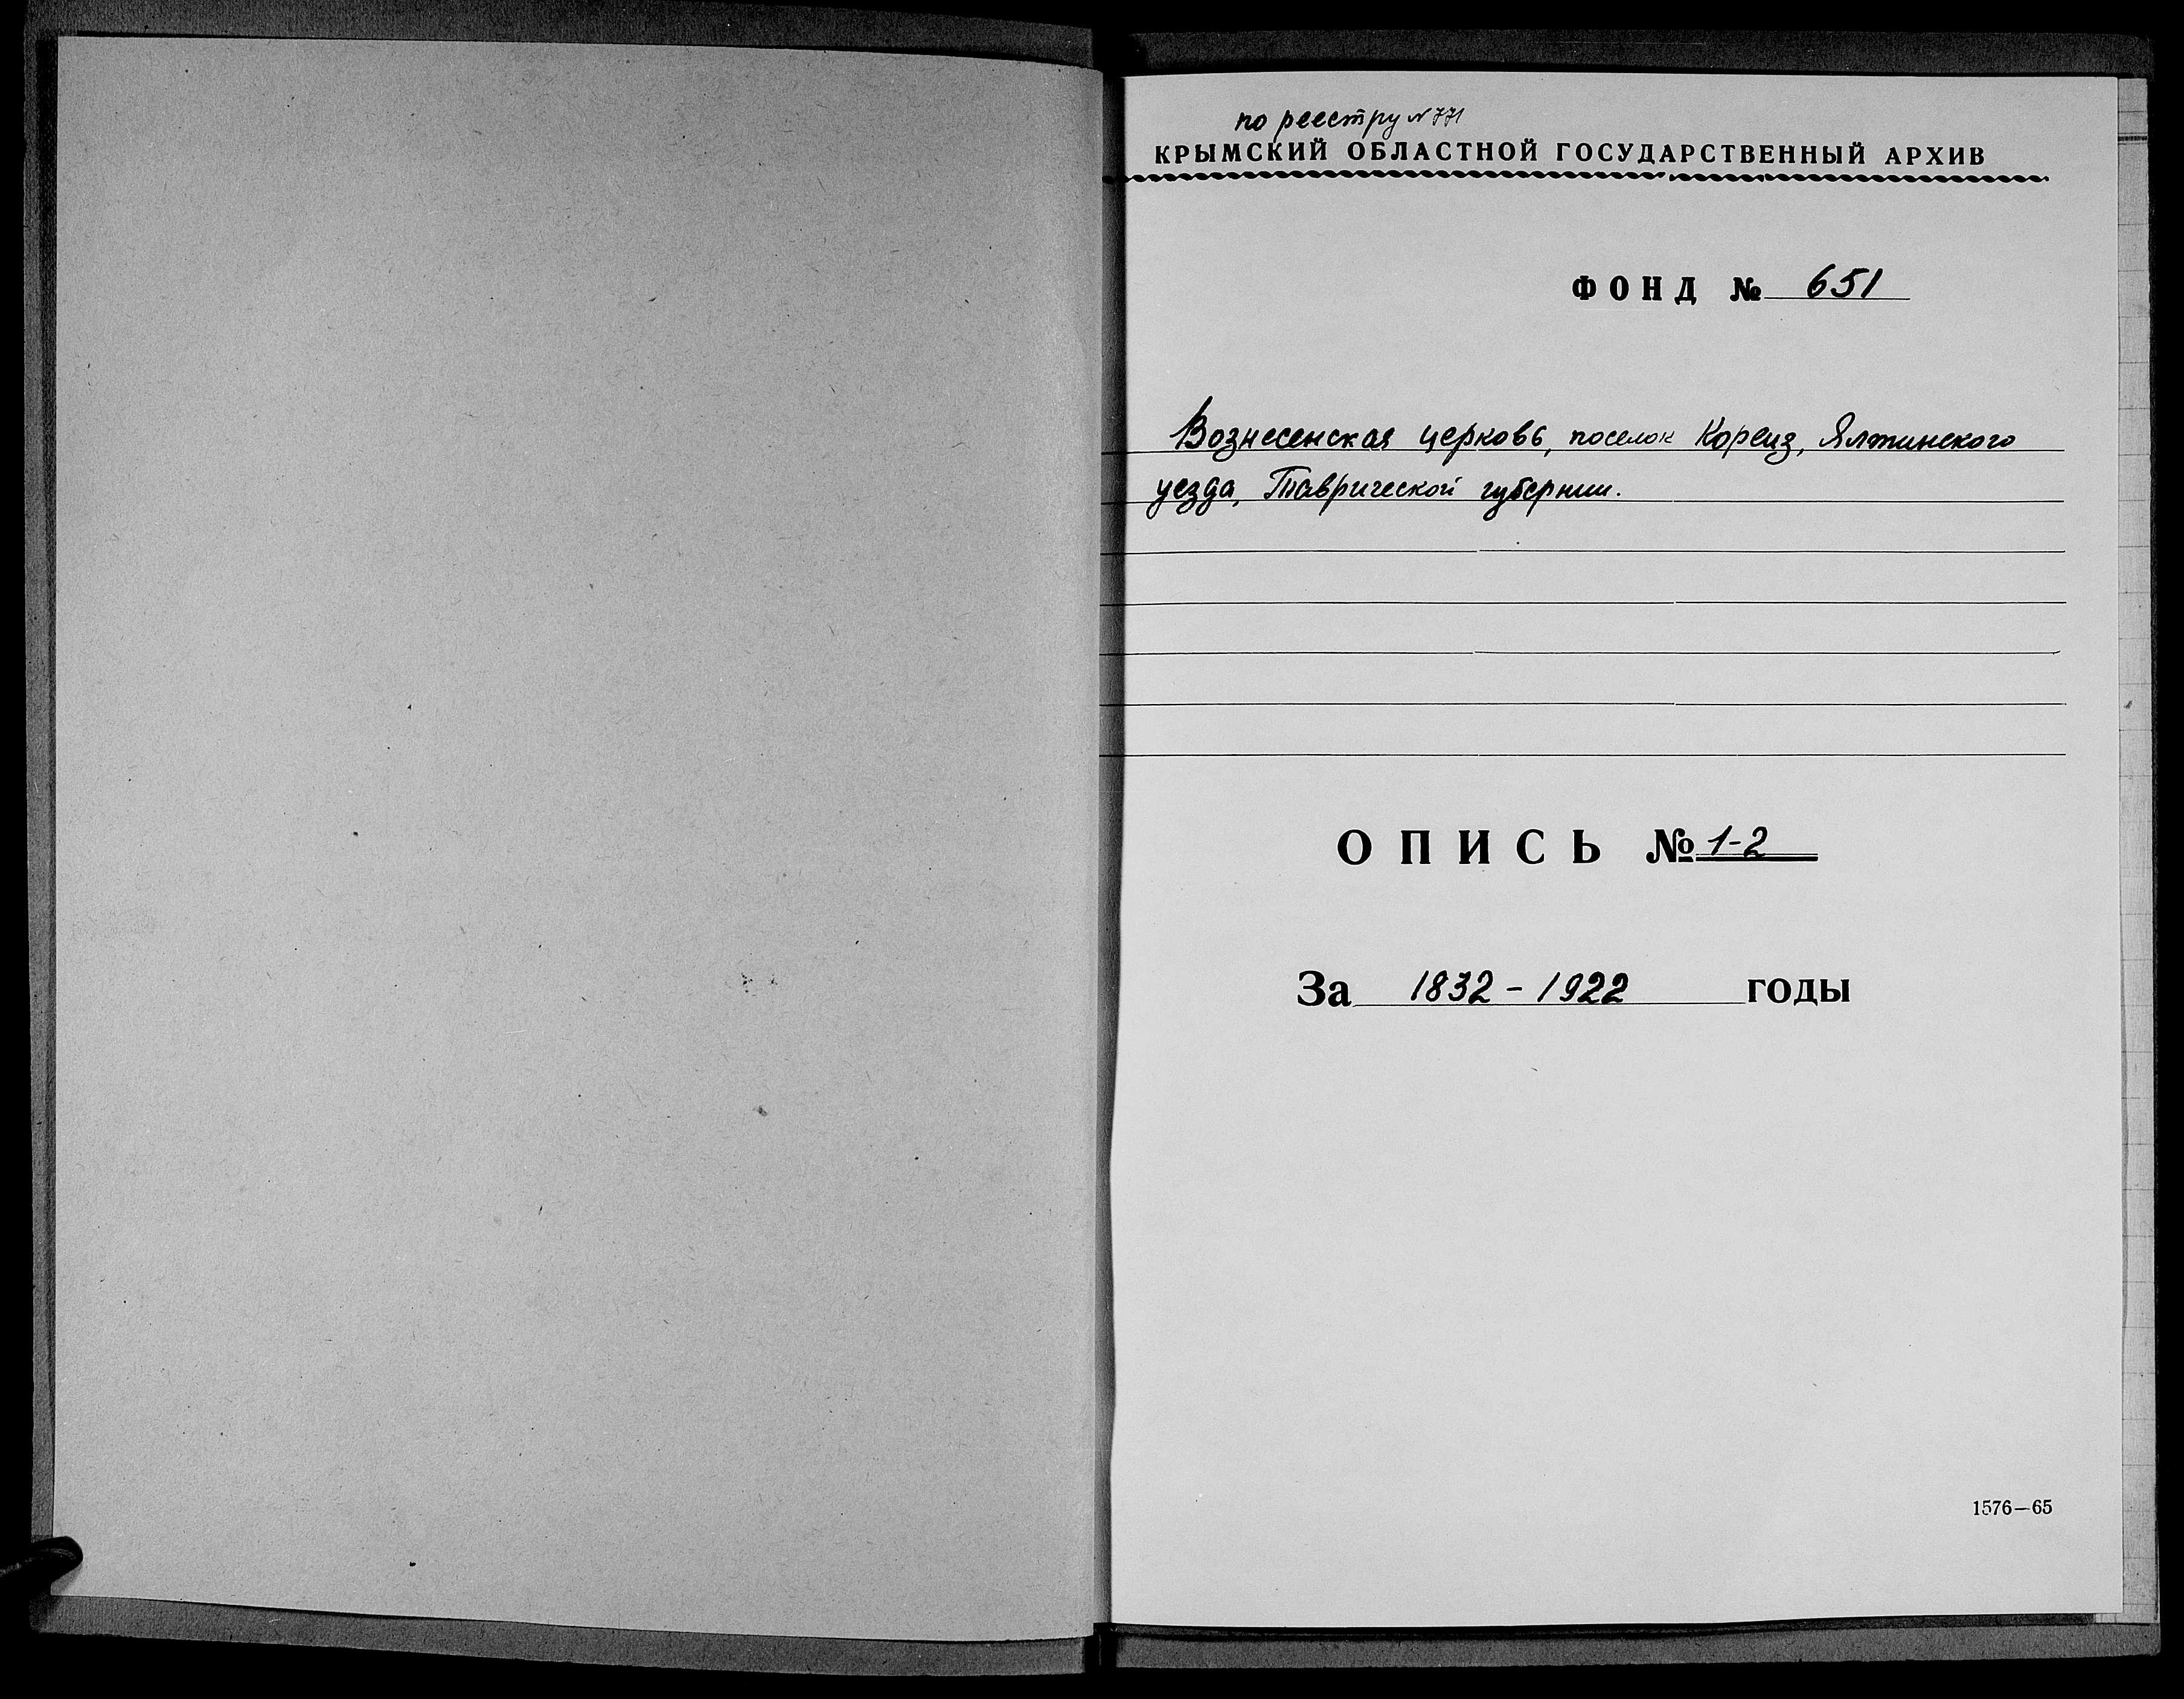 по реестру № 771
КРЫМСКИЙ ОБЛАСТНОЙ ГОСУДАРСТВЕННЫЙ АРХИВ
ФОНД № 651
Вознесенская церковь, поселок Кореиз, Ялтинского
уезда, Таврической губернии.
ОПИСЬ № 1-2
За 1832 - 1922 годы
1576—65